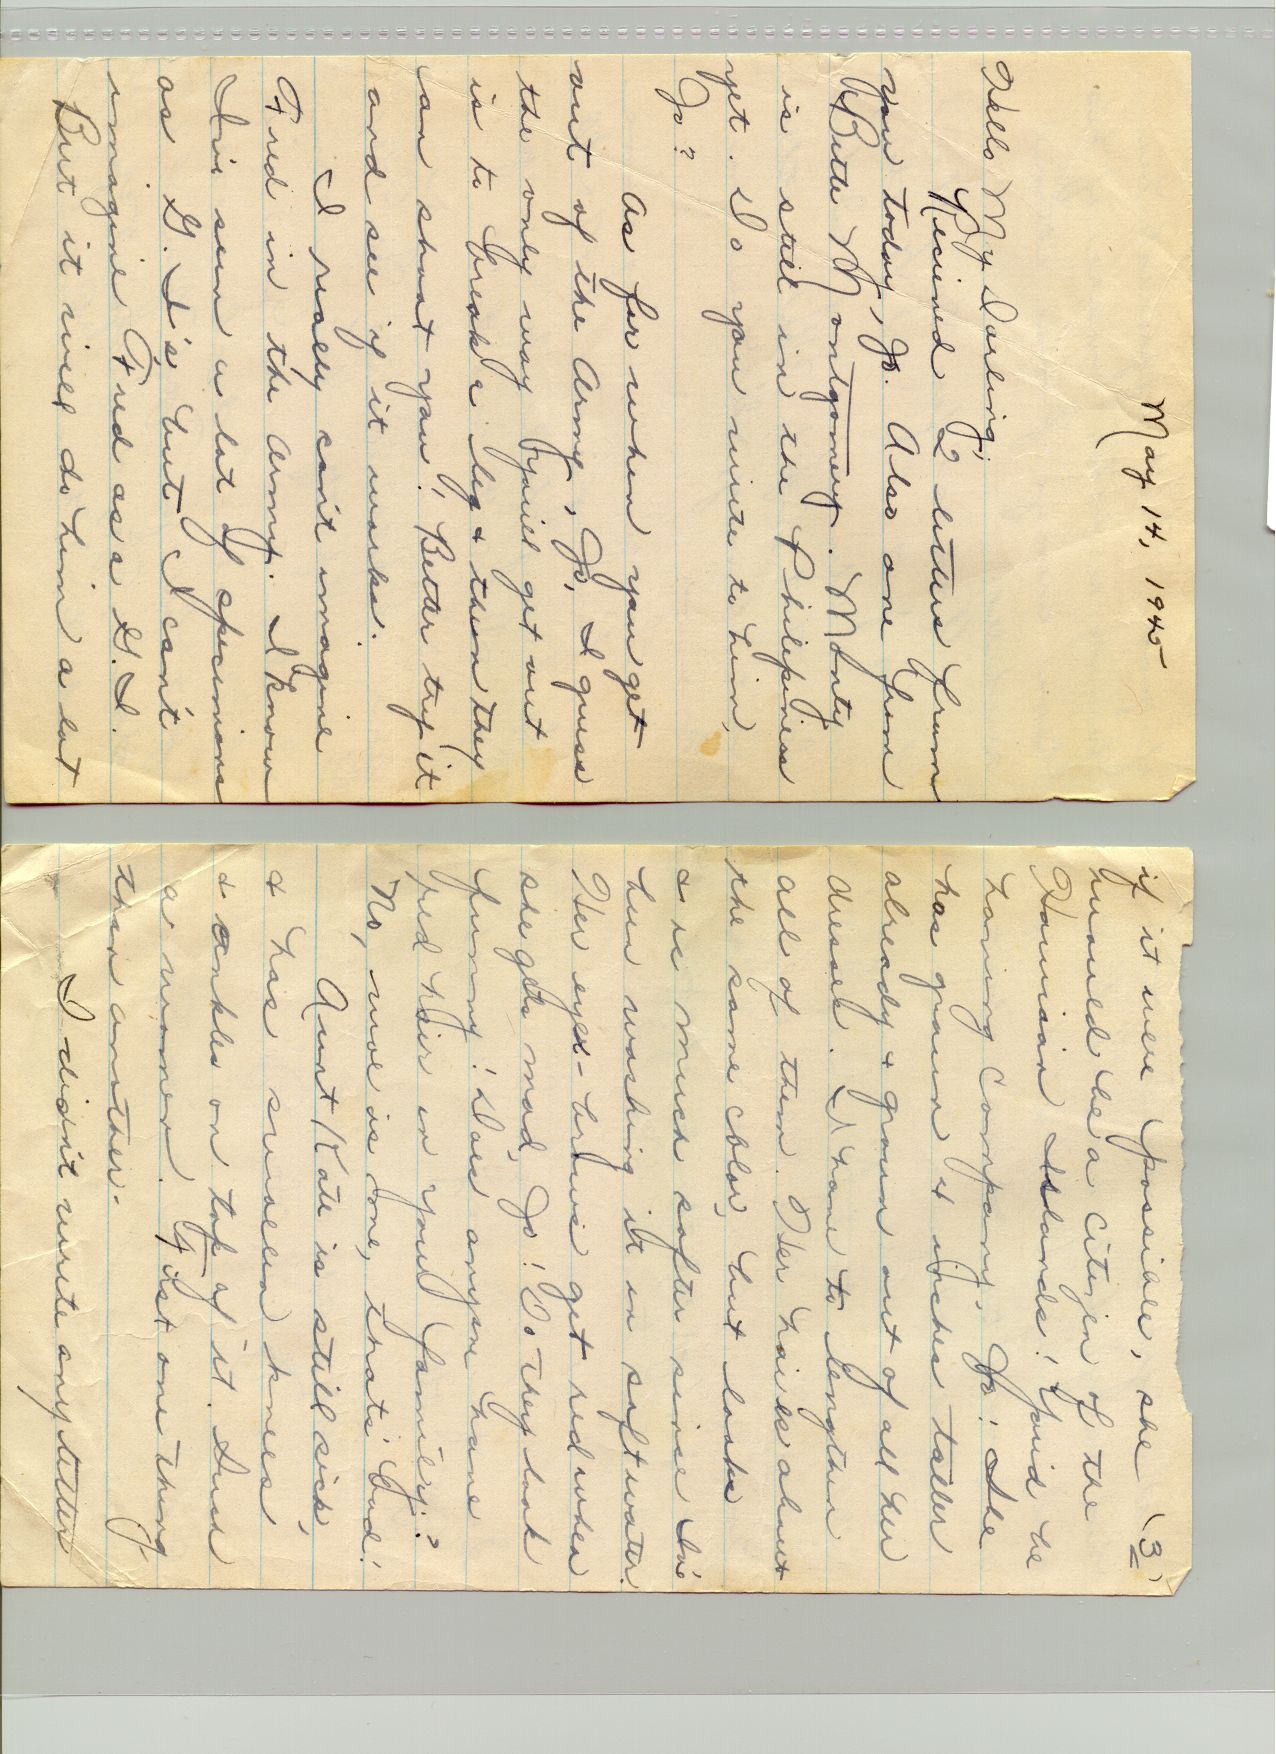 May 14, 1945
Hello My Darling,
Recieved 2 letters from
you today, Jo. Also one from
Bette Montgomery. Monty
is still in the Philipiness
yet. Do you write to him,
Jo?
As for when you get
out of the Army, Jo, I guess
the only way you'll get out
is to break a leg & then they
can shoot you! Better try it
and see if it works.
I really can't imagine
Fred in the Army. I know
I've seen a lot of specimens
as G. I's but I can't
imagine Fred as a G.I.
But it will do him a lot
(3)
if it were possible, she
would be a citizen of the
Hawaiian Islands! You'd be
having company, Jo! She
has grown 4 inches taller
already & grown out of all her
dresses. I have to lengthen
all of them. Her hair is about
the same color, but looks
& is much softer since I've
been washing it in soft water.
Her eye-brows get red when
she gets mad, Jo! Do they look
funny! Does anyone have
red hair in your family?
No, moe is one, that's bad!
Aunt Kate is still sick,
& has swollen knees
& ankles on top of it. Such
a woman. Just one thing
then another.
I didn't write any letters